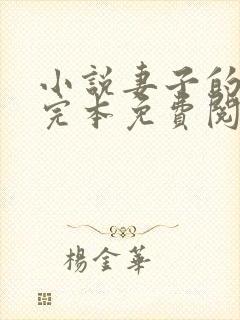 小說妻子的
完本免費閱
楊金華